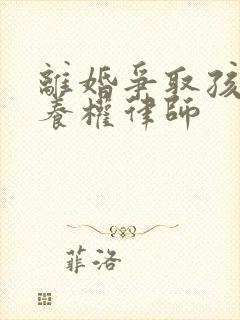 離婚爭取孩
養權律師
菲洛